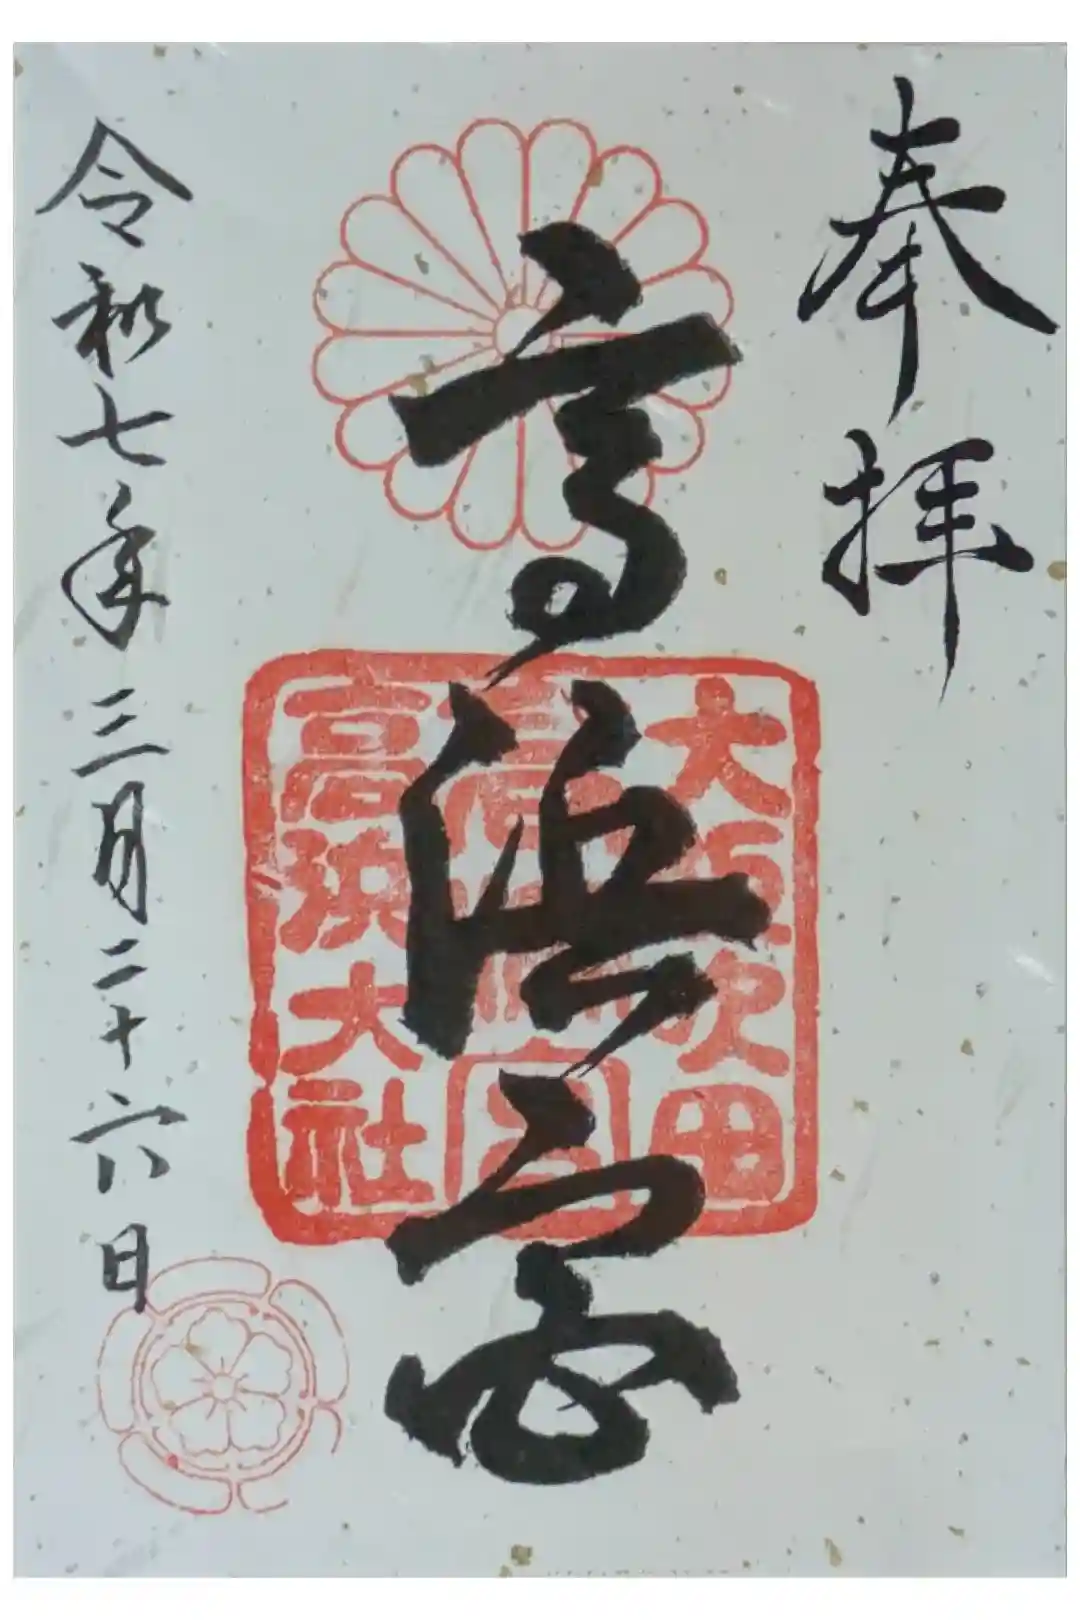 奉拝
高浜宮
大阪吹田
高浜宮
高浜大社
令和七年三月二十六日